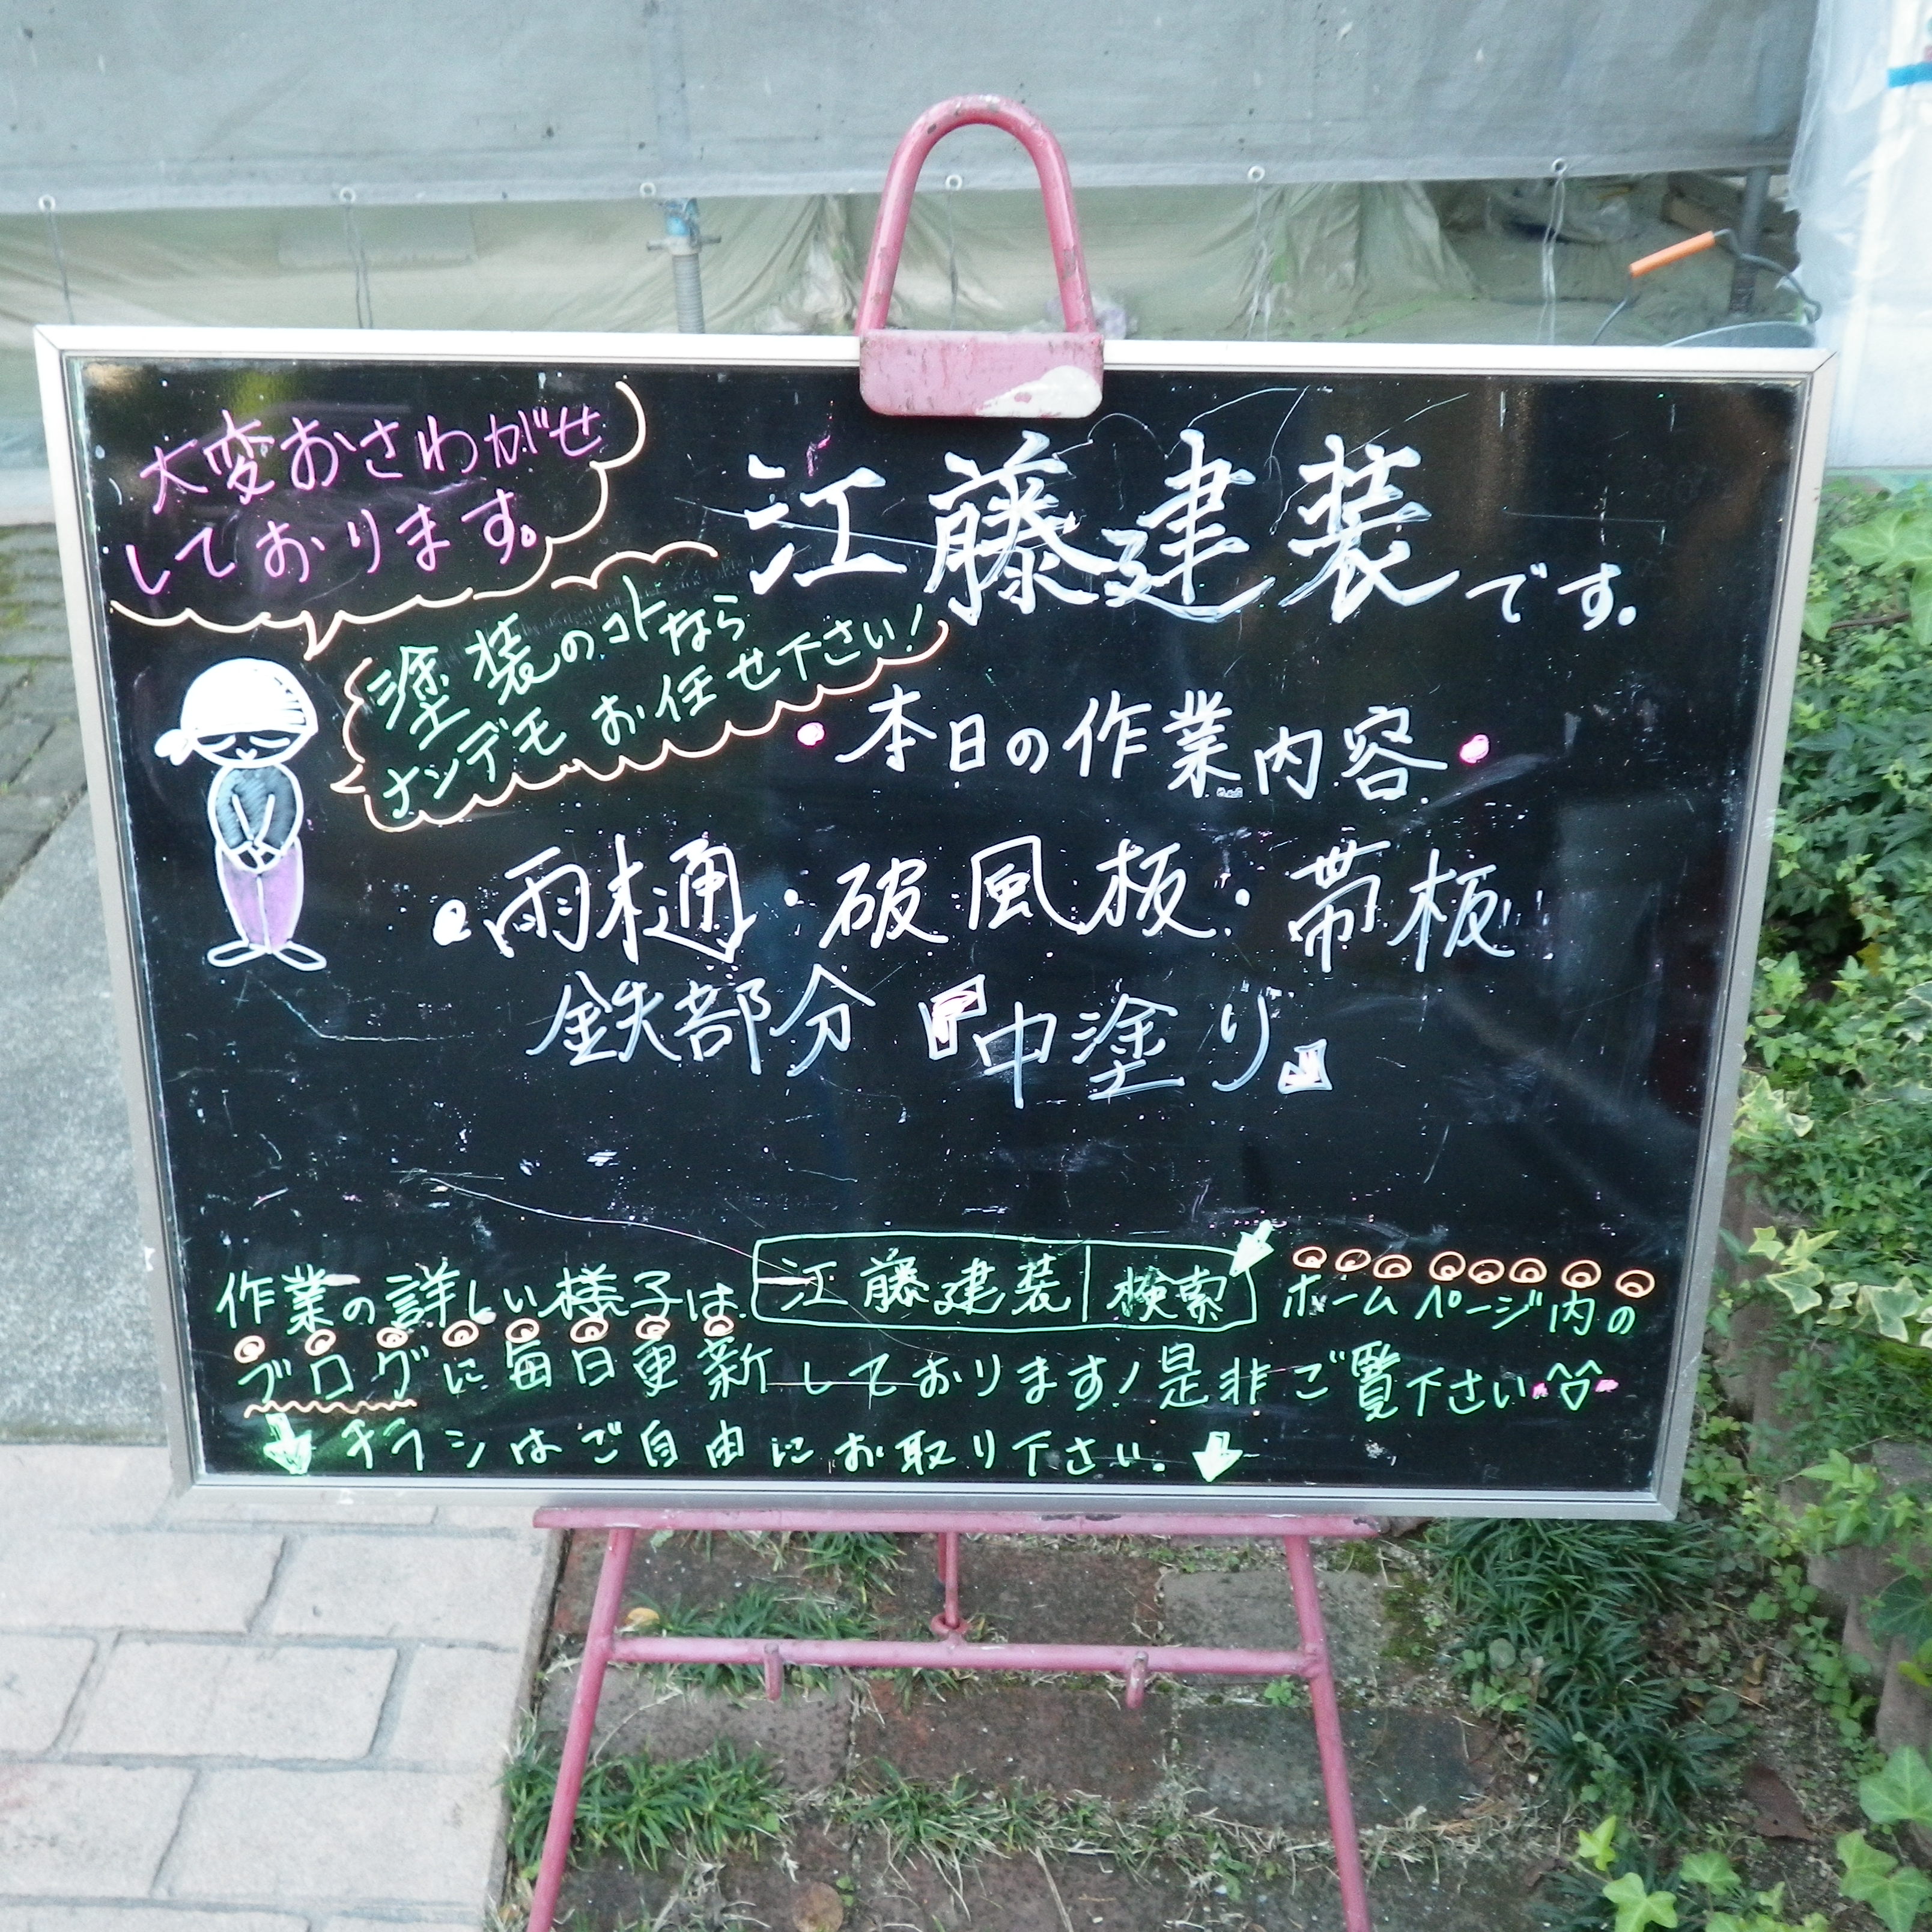 大変おさわがせ
しております。
江藤建装です。
塗装のコトなら
ナンデモお任せ下さい！
・本日の作業内容・
・雨樋・破風板・帯板
鉄部分『中塗り』
作業の詳しい様子は 江藤建装 検索 ホームページ内の
ブログに毎日更新しております！是非ご覧下さい
チラシはご自由にお取り下さい。